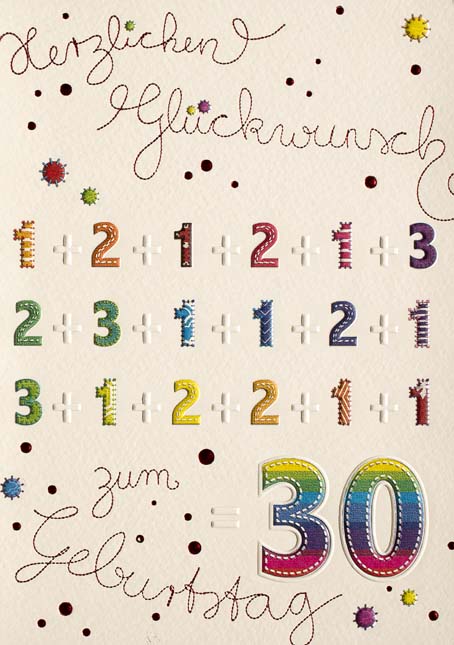 Herzlichen
Glückwunsch
1+2+1+2+1+3
2+3+1+1+2+1
3+1+2+2+1+1
zum
=30
Geburtstag